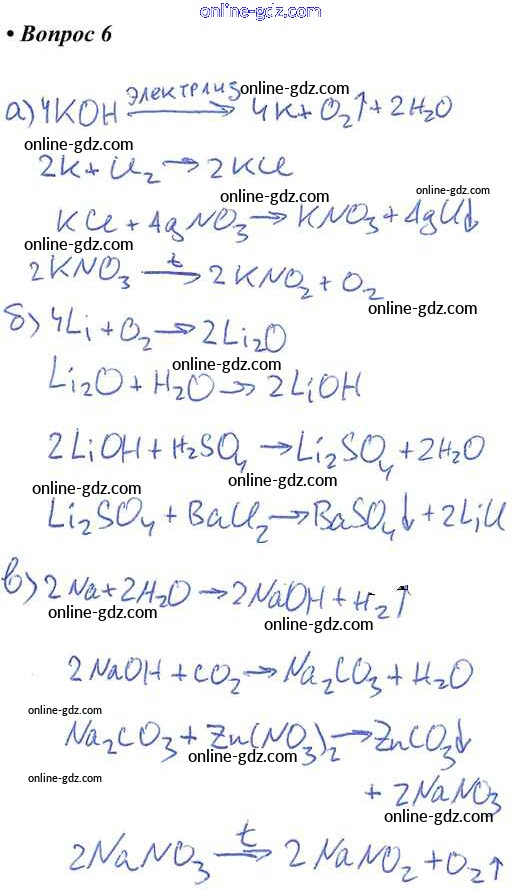 online-gdz.com
• Вопрос 6
а) 4KOH электролиз → 4K + O₂↑ + 2H₂O
online-gdz.com
online-gdz.com
2K + Cl₂ → 2KCl
online-gdz.com
online-gdz.com
KCl + AgNO₃ → KNO₃ + AgCl↓
online-gdz.com
2KNO₃ t → 2KNO₂ + O₂
online-gdz.com
б) 4Li + O₂ → 2Li₂O
online-gdz.com
Li₂O + H₂O → 2LiOH
2LiOH + H₂SO₄ → Li₂SO₄ + 2H₂O
online-gdz.com
online-gdz.com
Li₂SO₄ + BaCl₂ → BaSO₄↓ + 2LiCl
в) 2Na + 2H₂O → 2NaOH + H₂↑
online-gdz.com
online-gdz.com
2NaOH + CO₂ → Na₂CO₃ + H₂O
online-gdz.com
Na₂CO₃ + Zn(NO₃)₂ → ZnCO₃↓
online-gdz.com
online-gdz.com
+ 2NaNO₃
online-gdz.com
2NaNO₃ t → 2NaNO₂ + O₂↑